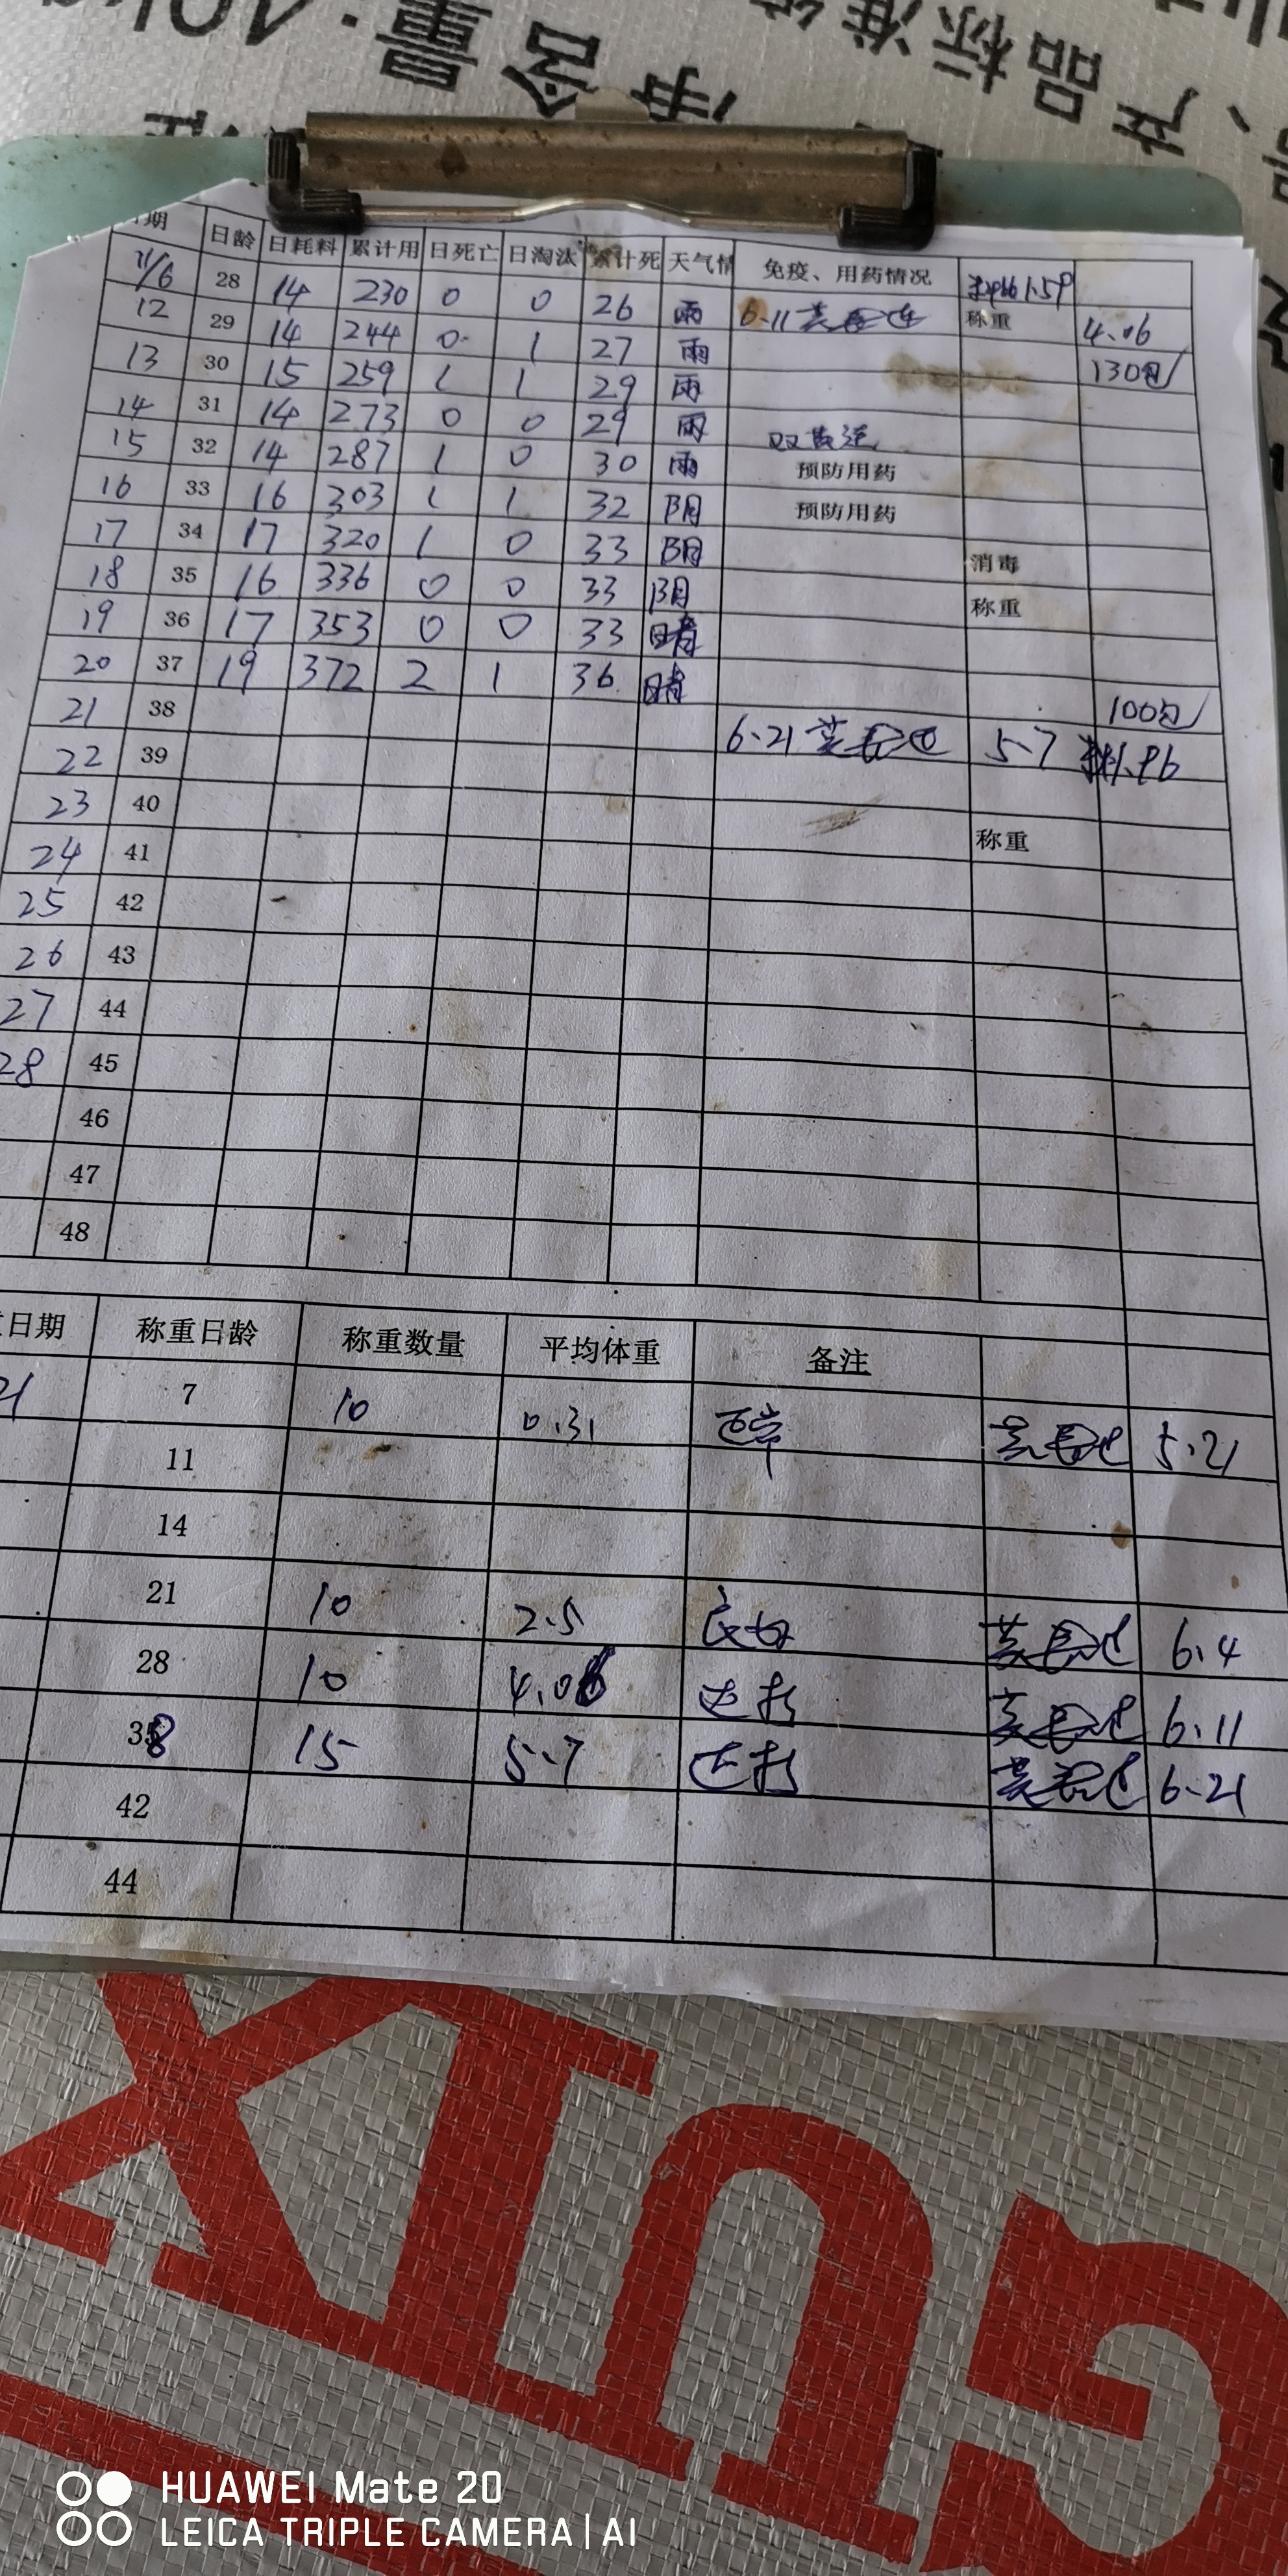 量:40kg
净含
产品标准编
期 日龄 日耗料 累计用 日死亡 日淘汰 累计死 天气情 免疫、用药情况 1.59
11/6 28 14 230 0 0 26 雨 6.11 称重 4.06
12 29 14 244 0 1 27 雨 130包
13 30 15 259 1 1 29 雨
14 31 14 273 0 0 29 雨
15 32 14 287 1 0 30 雨 预防用药
16 33 16 303 1 1 32 阴 预防用药
17 34 17 320 1 0 33 阴 消毒
18 35 16 336 0 0 33 阴 称重
19 36 17 353 0 0 33 晴
20 37 19 372 2 1 36 晴 100包
21 38 6.21 5.7 料1.96
22 39
23 40
24 41 称重
25 42
26 43
27 44
28 45
46
47
48
日期 称重日龄 称重数量 平均体重 备注
21 7 10 0.31 正常 5.21
11
14
21 10 2.5 良好 6.4
28 10 4.06 达标 6.11
38 15 5.7 达标 6.21
42
44
HUAWEI Mate 20
LEICA TRIPLE CAMERA | AI